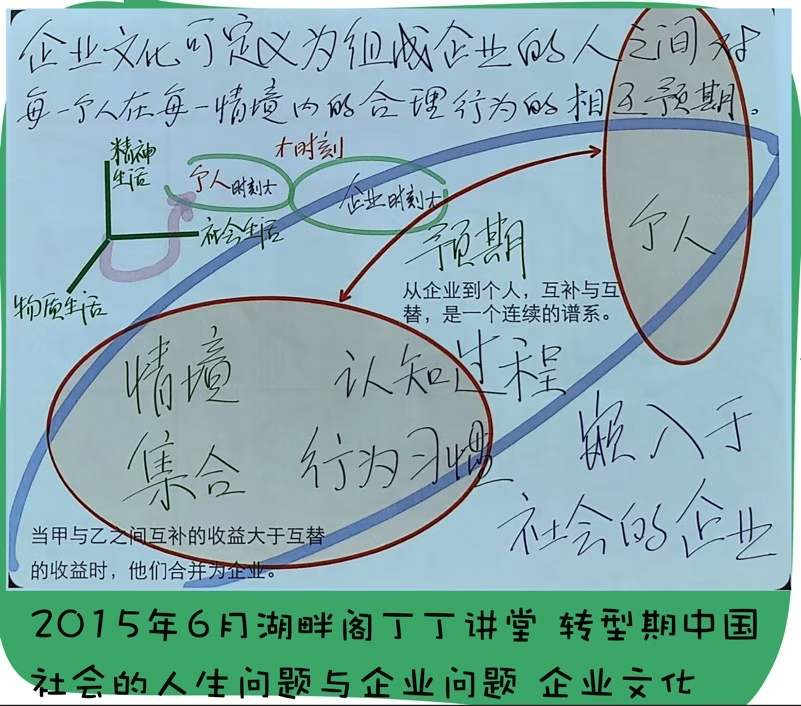 企业文化可定义为组成企业的人之间对
每一个人在每一情境内的合理行为的相互预期。
精神
生活
个人时刻t
t时刻
企业时刻t
社会生活
物质生活
预期
个人
从企业到个人，互补与互
替，是一个连续的谱系。
情境
集合
认知过程
行为习惯
嵌入于
社会的企业
当甲与乙之间互补的收益大于互替
的收益时，他们合并为企业。
2015年6月湖畔阁丁丁讲堂 转型期中国
社会的人生问题与企业问题 企业文化